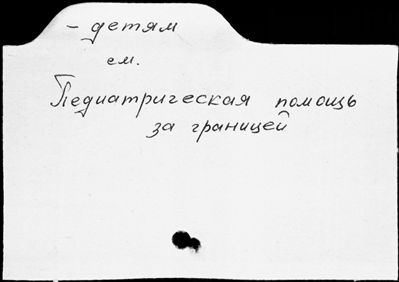 - детям
см.
Педиатрическая помощь
за границей